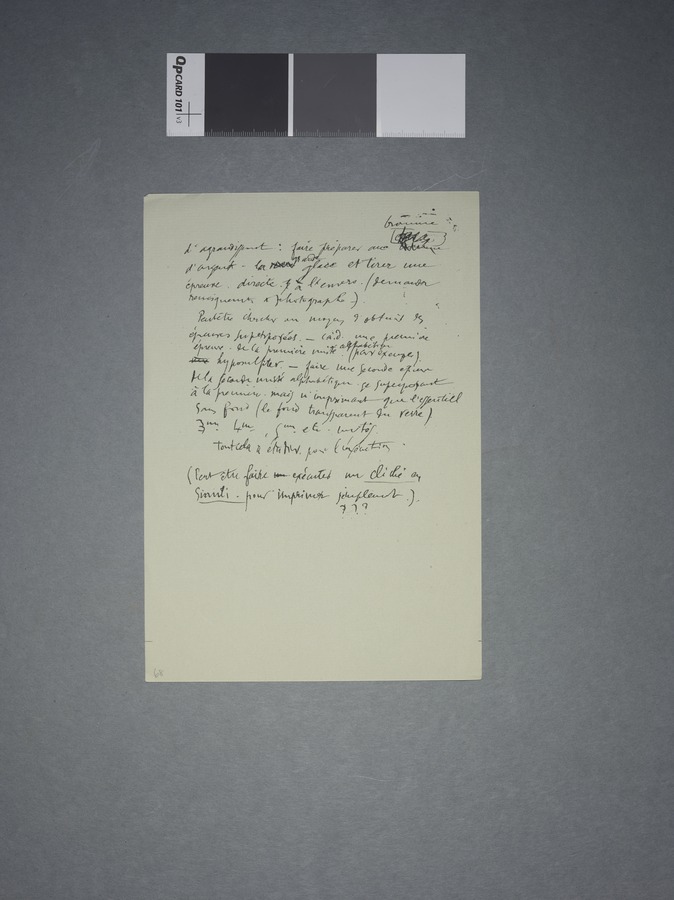 QPCARD 101 v3
bromure
d'agrandissement : faire préparer au
d'argent - la grande glace et tirer une
épreuve directe à l'envers. (demander
renseignements à photographe).
Peut être chercher un moyen d'obtenir des
épreuves superposées. — càd. une première
épreuve de la première unité alphabétique
(par exemple)
— faire une seconde épreuve
de la seconde unité alphabétique se superposant
à la première mais n'imprimant que l'essentiel
sans fond (le fond transparent du verre)
3me 4me, 5me etc. unités.
tout cela à étudier pour l'exécution.
(Peut être faire exécuter un cliché au
pour imprimer simplement.).
? ? ?